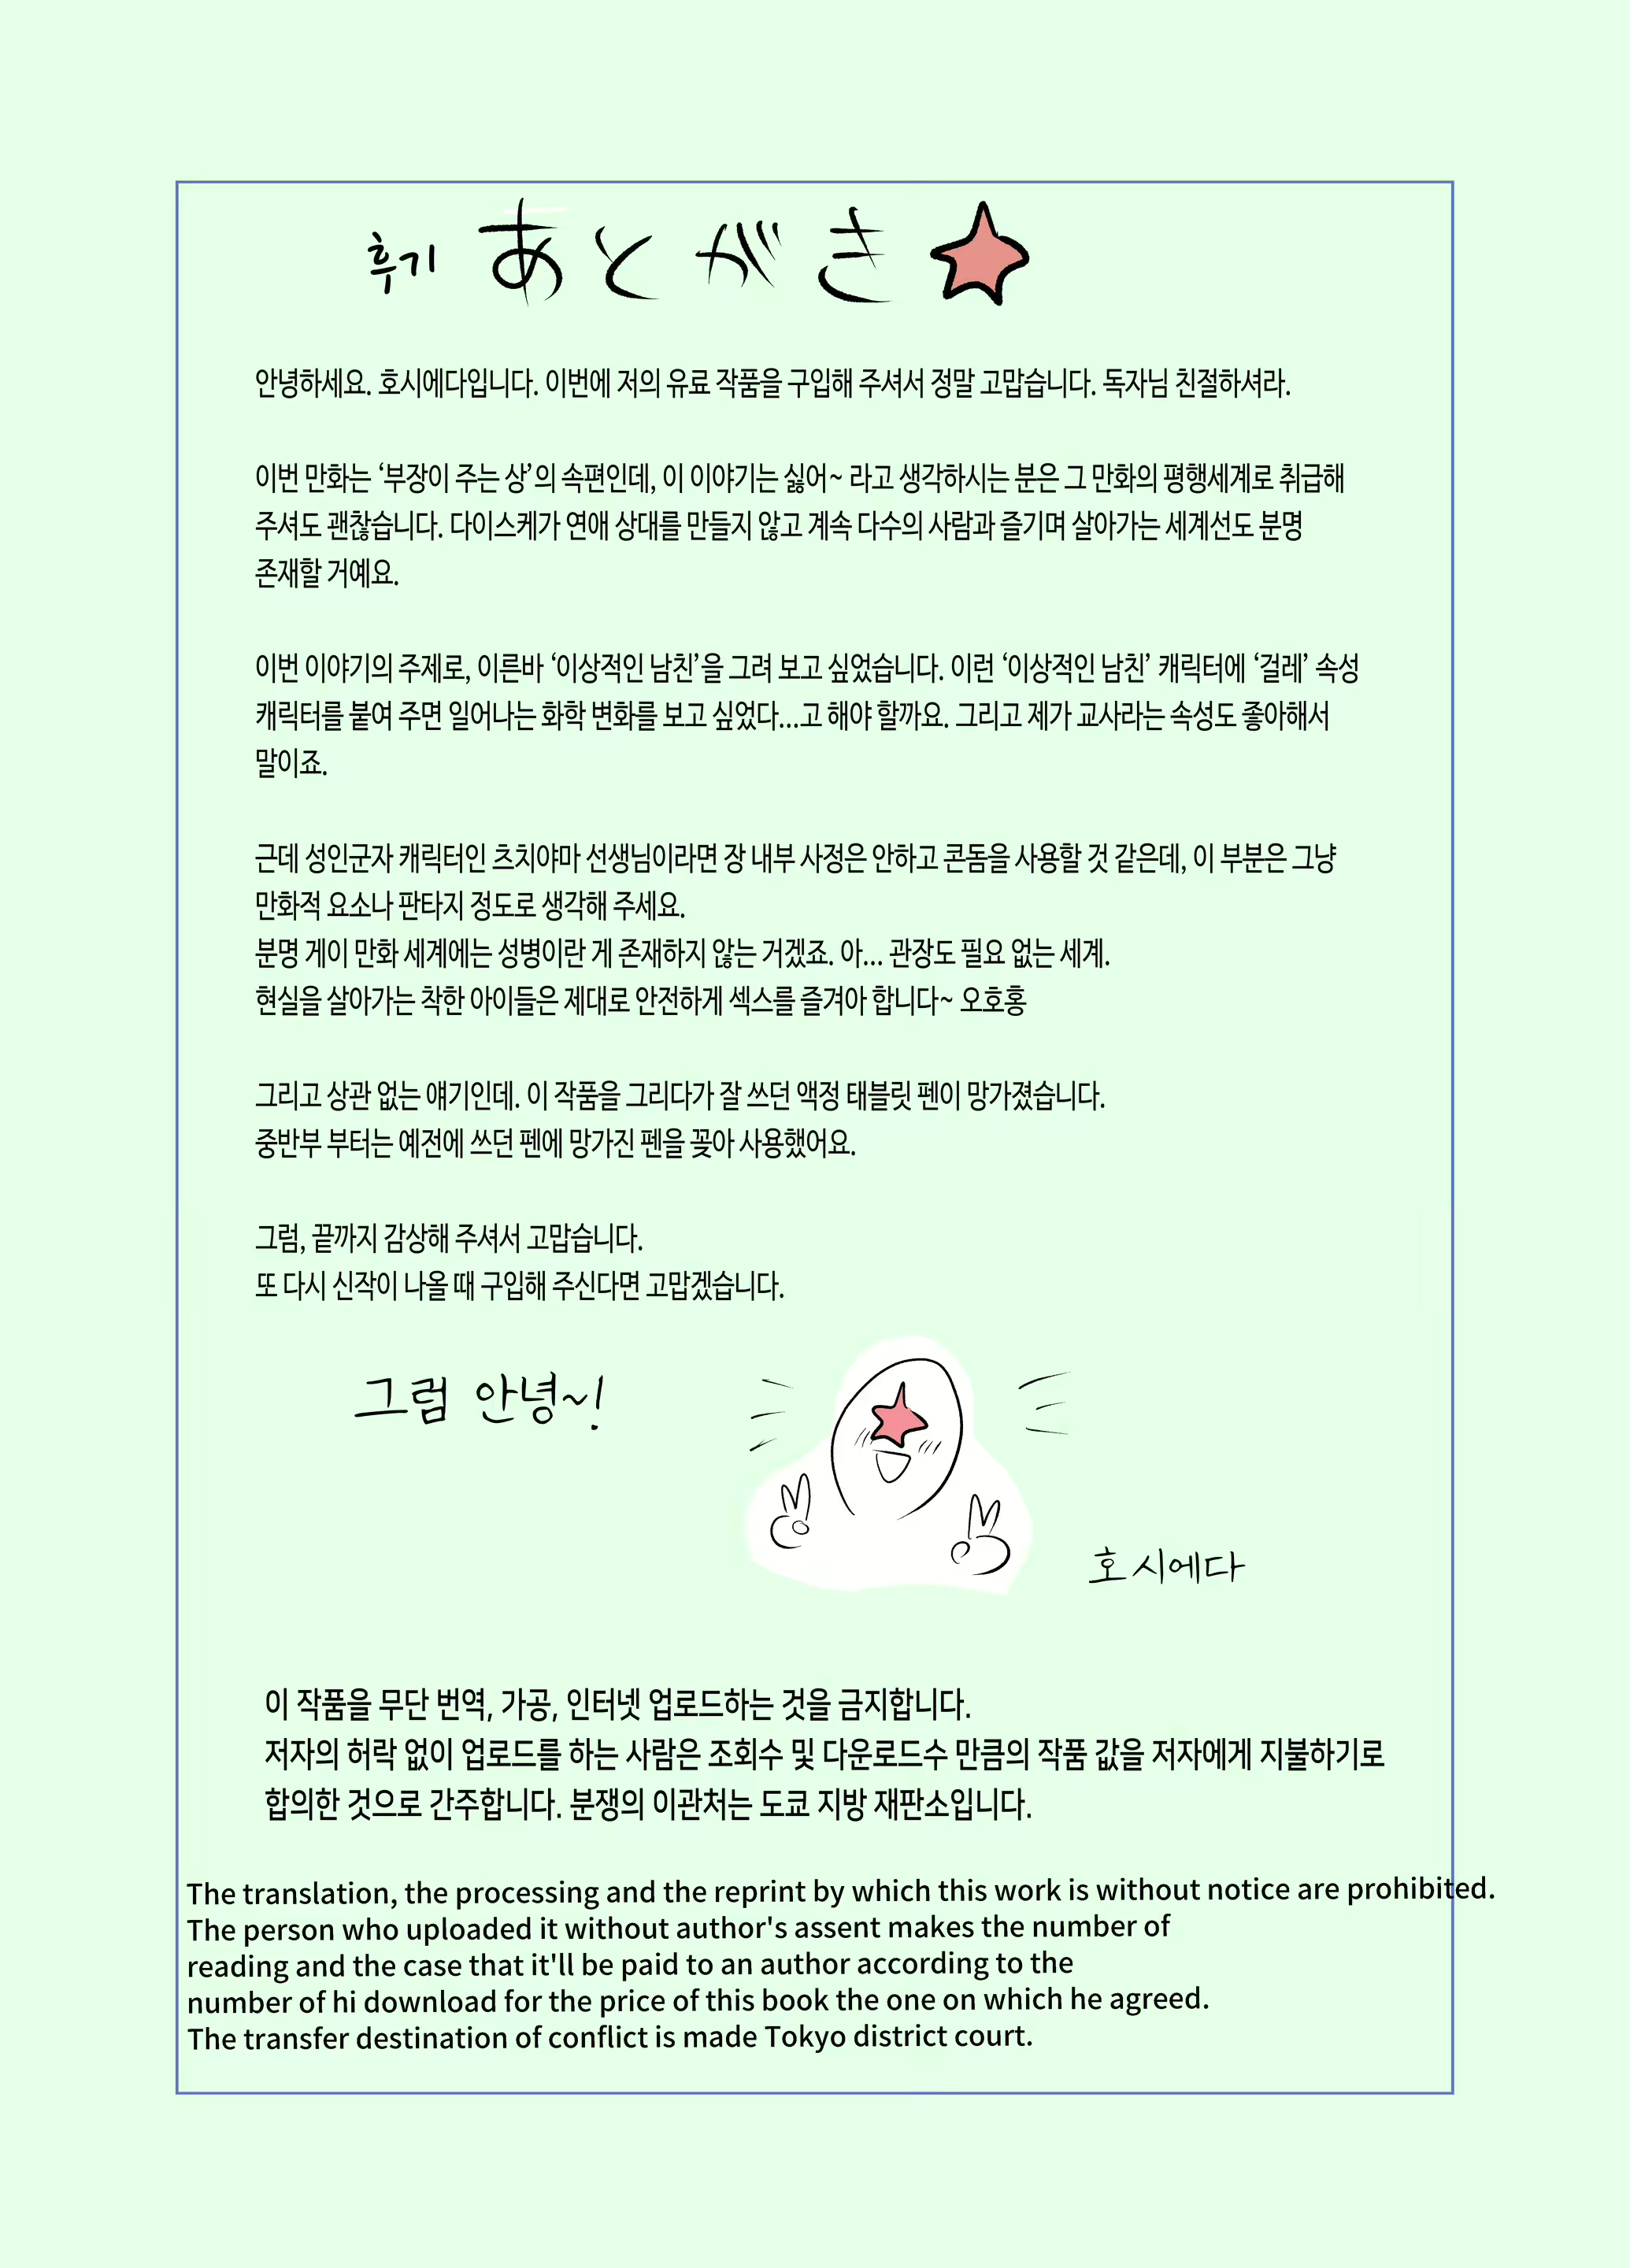 후기 あとがき
안녕하세요. 호시에다입니다. 이번에 저의 유료 작품을 구입해 주셔서 정말 고맙습니다. 독자님 친절하셔라.
이번 만화는 ‘부장이 주는 상’의 속편인데, 이 이야기는 싫어~ 라고 생각하시는 분은 그 만화의 평행세계로 취급해
주셔도 괜찮습니다. 다이스케가 연애 상대를 만들지 않고 계속 다수의 사람과 즐기며 살아가는 세계선도 분명
존재할 거예요.
이번 이야기의 주제로, 이른바 ‘이상적인 남친’을 그려 보고 싶었습니다. 이런 ‘이상적인 남친’ 캐릭터에 ‘걸레’ 속성
캐릭터를 붙여 주면 일어나는 화학 변화를 보고 싶었다...고 해야 할까요. 그리고 제가 교사라는 속성도 좋아해서
말이죠.
근데 성인군자 캐릭터인 츠치야마 선생님이라면 장 내부 사정은 안하고 콘돔을 사용할 것 같은데, 이 부분은 그냥
만화적 요소나 판타지 정도로 생각해 주세요.
분명 게이 만화 세계에는 성병이란 게 존재하지 않는 거겠죠. 아... 관장도 필요 없는 세계.
현실을 살아가는 착한 아이들은 제대로 안전하게 섹스를 즐겨아 합니다~ 오호홍
그리고 상관 없는 얘기인데. 이 작품을 그리다가 잘 쓰던 액정 태블릿 펜이 망가졌습니다.
중반부 부터는 예전에 쓰던 펜에 망가진 펜을 꽂아 사용했어요.
그럼, 끝까지 감상해 주셔서 고맙습니다.
또 다시 신작이 나올 때 구입해 주신다면 고맙겠습니다.
그럼 안녕~!
호시에다
이 작품을 무단 번역, 가공, 인터넷 업로드하는 것을 금지합니다.
저자의 허락 없이 업로드를 하는 사람은 조회수 및 다운로드수 만큼의 작품 값을 저자에게 지불하기로
합의한 것으로 간주합니다. 분쟁의 이관처는 도쿄 지방 재판소입니다.
The translation, the processing and the reprint by which this work is without notice are prohibited.
The person who uploaded it without author's assent makes the number of
reading and the case that it'll be paid to an author according to the
number of hi download for the price of this book the one on which he agreed.
The transfer destination of conflict is made Tokyo district court.